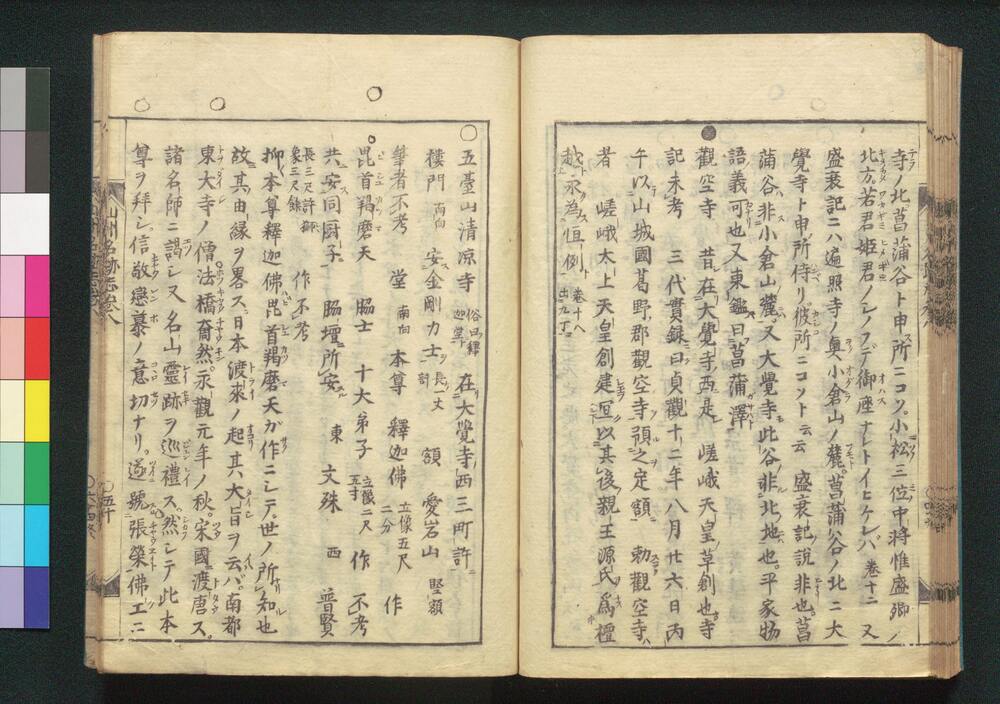 寺ノ北菖蒲谷ト申所ニコソ。小松三位中将惟盛卿ノ
北方。若君姫君ノシノフデ御座ナレトイヒケレバ 巻十二 又
盛衰記ニハ遍照寺ノ奥小倉山ノ麓。菖蒲谷ノ北ニ大
覺寺ト申所侍リ。彼所ニコソト云云 盛衰記ノ説非也。菖
蒲谷ハ非小倉山麓。又大覺寺モ此谷ノ非北地也。平家物
語義可也又東鑑曰菖蒲澤
觀空寺 昔在大覺寺西是 嵯峨天皇草創也。寺
記未考 三代實録曰貞觀十二年八月廿六日丙
午以山城國葛野郡觀空寺預之定額 勅觀空寺ハ
者 嵯峨太上天皇創建冝以其後親王源氏為檀
越永為恒例 巻十八出九丁
五臺山清凉寺 俗曰釋迦堂 在大覺寺西三町許
樓門 南向 安金剛力士 長一丈計 額 愛宕山 竪額
筆者不考 堂 南向 本尊 釋迦佛 立像五尺二分 作
毘首羯磨天 脇士 十大弟子 立像二尺五寸 作 不考
共安同厨子。 脇壇所安 東 文殊 西 普賢
長三尺許獅象三尺餘 作不考
抑本尊釋迦佛毘首羯磨天ガ作ニシテ。世ノ所知也
故ニ其由縁ヲ畧ス。日本渡來ノ起其大旨ヲ云バ。南都
東大寺ノ僧法橋奝然。永觀元年ノ秋。宋國ニ渡唐ス。
諸名師ニ謁シ又名山靈跡ヲ巡禮ス。然シテ此本
尊ヲ拜シ。信敬戀慕ノ意切ナリ。遂號張榮佛工ニ
山州名跡志巻八
五十